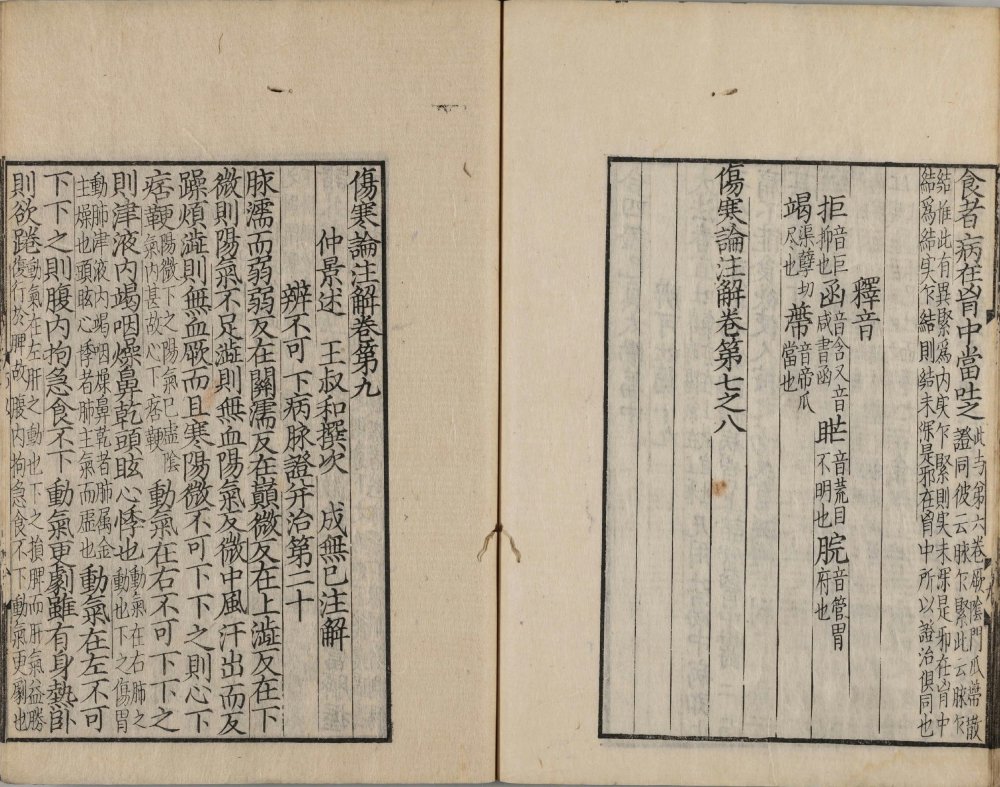 食者病在胷中當吐之此与第六卷厥隂門瓜蔕散
證同彼云脉乍緊此云脉乍
結惟此有異緊爲内实乍緊則实未深是邪在胷中
結爲結实乍結則結未深是邪在胷中所以證治俱同也
釋音
拒音巨
抑也函音含又音
咸書函𥄙音荒目
不明也脘音管胃
府也
竭渠孽切
尽也蔕音帝瓜
當也
傷寒論注解卷第七之八
傷寒論注解卷第九
仲景述 王叔和撰次 成無已注解
辨不可下病脉證并治第二十
脉濡而弱弱反在關濡反在巔微反在上澁反在下
微則陽氣不足澁則無血陽氣反微中風汗出而反
躁煩澁則無血厥而且寒陽微不可下下之則心下
痞鞕陽微下之陽氣已虚隂
氣内甚故心下痞鞕動氣在右不可下下之
則津液内竭咽燥鼻乾頭眩心悸也動氣在右肺之
動也下之傷胃
動肺津液内竭咽燥鼻乾者肺属金
主燥也頭眩心悸者肺主氣而虚也動氣在左不可
下下之則腹内拘急食不下動氣更劇雖有身熱卧
則欲踡動氣在左肝之動也下之損脾而肝氣益勝
復行於脾故腹内拘急食不下動氣更劇也